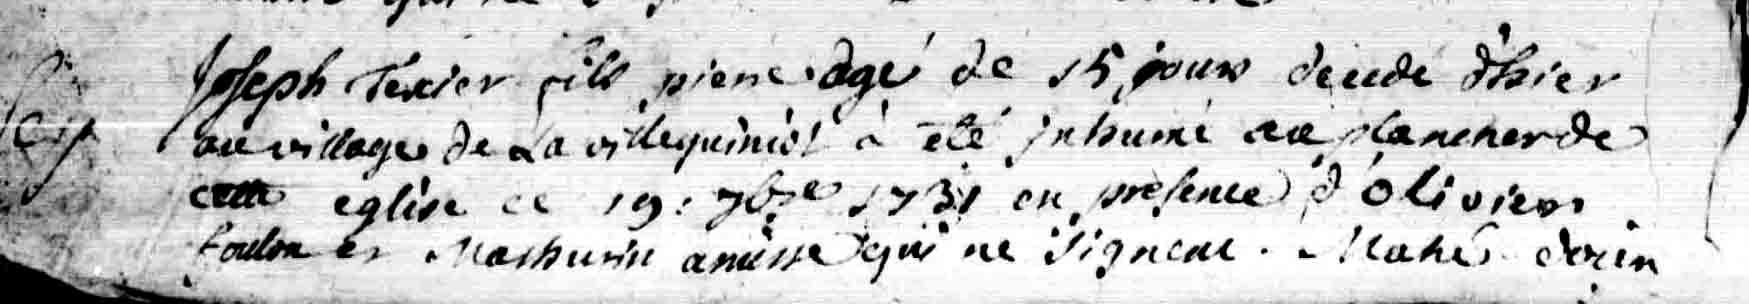 Joseph texier fils pierre agé de 15 jours decedé d'hier
au village de La villequiniot à eté jnhumé au plancher de
cette eglise ce 19. 7bre 1731 en presence d'olivier
et Mathurin qui ne signent. Mahé